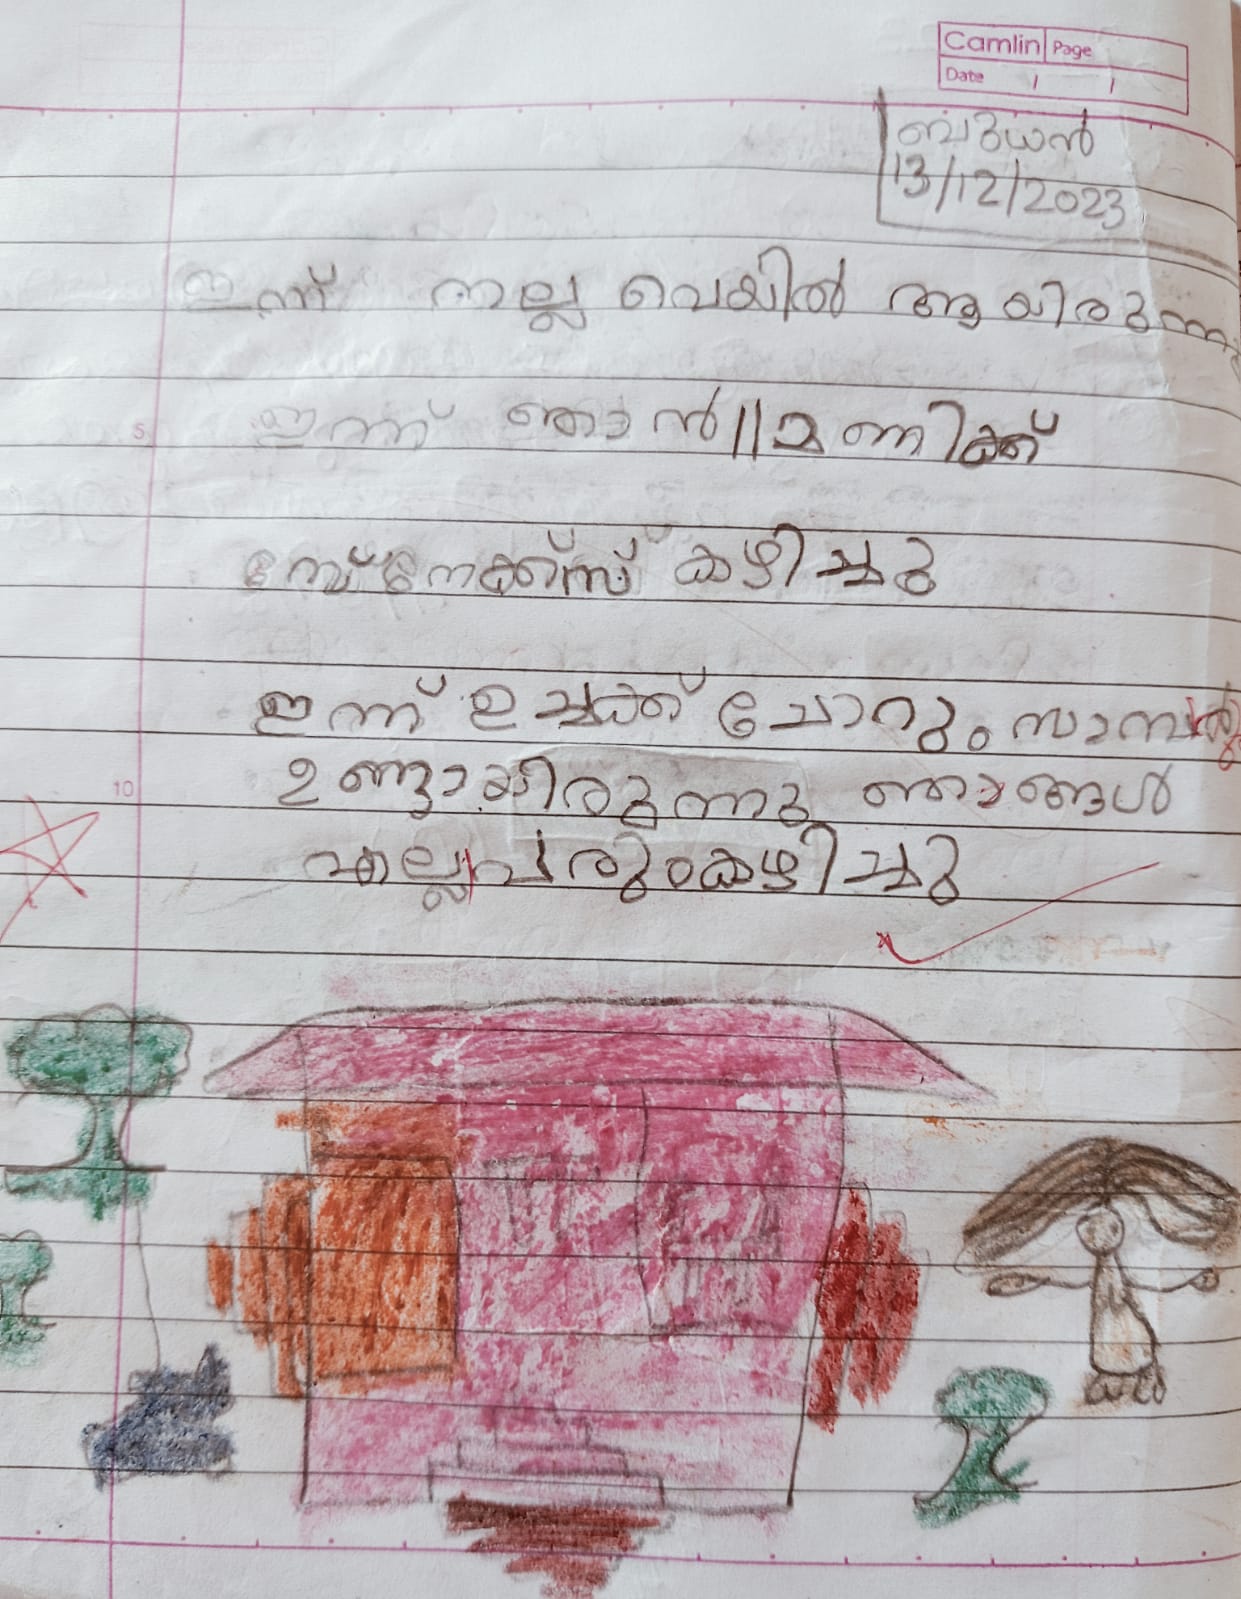 Camlin Page
Date / /
ബുധൻ
13/12/2023
ഇന്ന് നല്ല വെയിൽ ആയിരുന്നു
5
ഇന്ന് ഞാൻ 11 മണിക്ക്
സ്നേക്ക്സ് കഴിച്ചു
ഇന്ന് ഉച്ചക്ക് ചോറും സാമ്പർും
10
ഉണ്ടായിരുന്നു ഞാങ്ങൾ
എല്ലാവരുംകഴിച്ചു